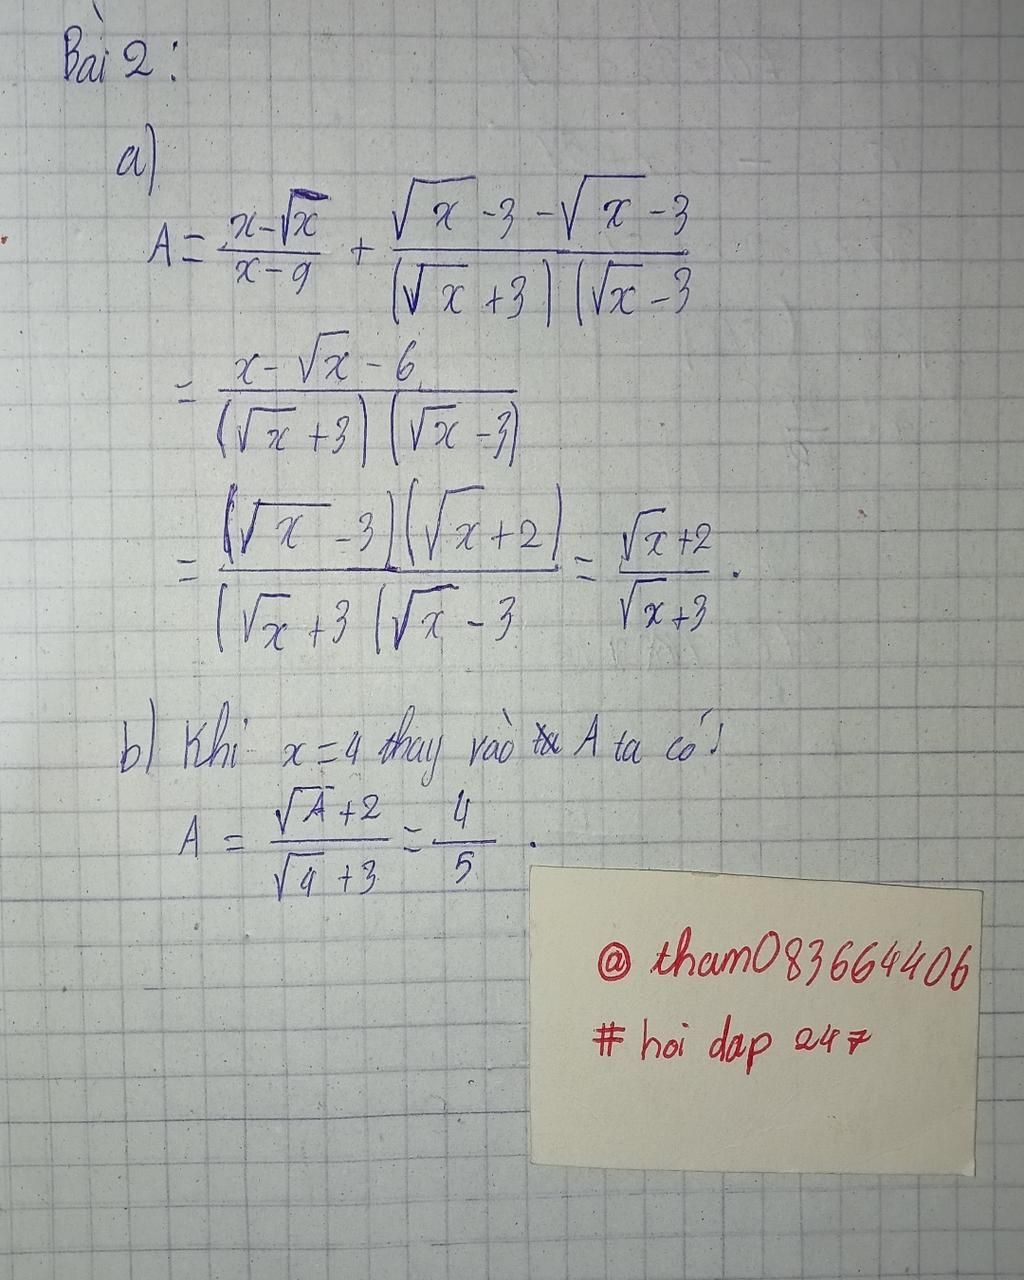 Bài 2:
a)
A = \frac{x-\sqrt{x}}{x-9} + \frac{\sqrt{x}-3-\sqrt{x}-3}{(\sqrt{x}+3)(\sqrt{x}-3}
= \frac{x-\sqrt{x}-6}{(\sqrt{x}+3)(\sqrt{x}-3)}
= \frac{(\sqrt{x}-3)(\sqrt{x}+2)}{(\sqrt{x}+3(\sqrt{x}-3} = \frac{\sqrt{x}+2}{\sqrt{x}+3}.
b) Khi x=4 thay vào A ta có:
A = \frac{\sqrt{4}+2}{\sqrt{4}+3} = \frac{4}{5}.
@tham083664406
# hoi dap 247